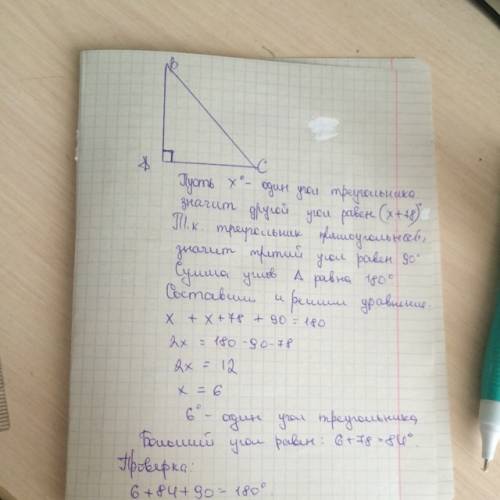 B
A
C
Пусть x° - один угол треугольника
значит другой угол равен (x+78)°
Т.к. треугольник прямоугольный,
значит третий угол равен 90°
Сумма углов Δ равна 180°
Составим и решим уравнение.
x + x+78 + 90 = 180
2x = 180-90-78
2x = 12
x = 6
6° - один угол треугольника,
Больший угол равен: 6+78=84°.
Проверка:
6+84+90=180°